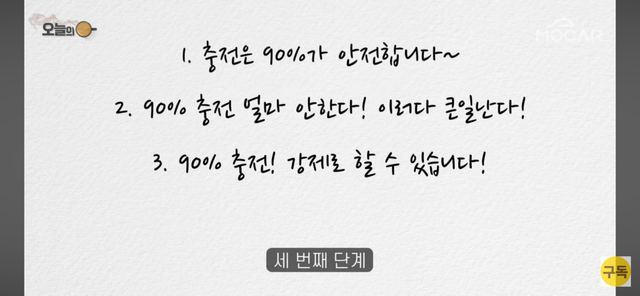 오늘의
MOCAR
1. 충전은 90%가 안전합니다~
2. 90% 충전 얼마 안한다! 이러다 큰일난다!
3. 90% 충전! 강제로 할 수 있습니다!
세 번째 단계
구독